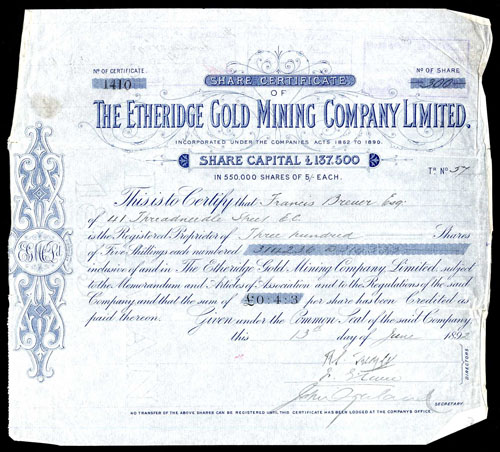 No OF CERTIFICATE.
1410
No OF SHARE
300
SHARE CERTIFICATE
OF
THE ETHERIDGE GOLD MINING COMPANY LIMITED.
INCORPORATED UNDER THE COMPANIES ACTS 1862 TO 1890.
SHARE CAPITAL £137,500
IN 550,000 SHARES OF 5/- EACH.
Tr No 57
This is to Certify that Francis Brewer Esq
of 41 Threadneedle Street E.C
is the Registered Proprietor of Three hundred Shares
of Five Shillings each numbered
inclusive of and in The Etheridge Gold Mining Company, Limited, subject
to the Memorandum and Articles of Association and to the Regulations of the said
Company, and that the sum of £0:4:3 per share has been Credited as
paid thereon. Given under the Common Seal of the said Company
this 13th day of June 1892
DIRECTORS
John
SECRETARY
NO TRANSFER OF THE ABOVE SHARES CAN BE REGISTERED UNTIL THIS CERTIFICATE HAS BEEN LODGED AT THE COMPANY'S OFFICE